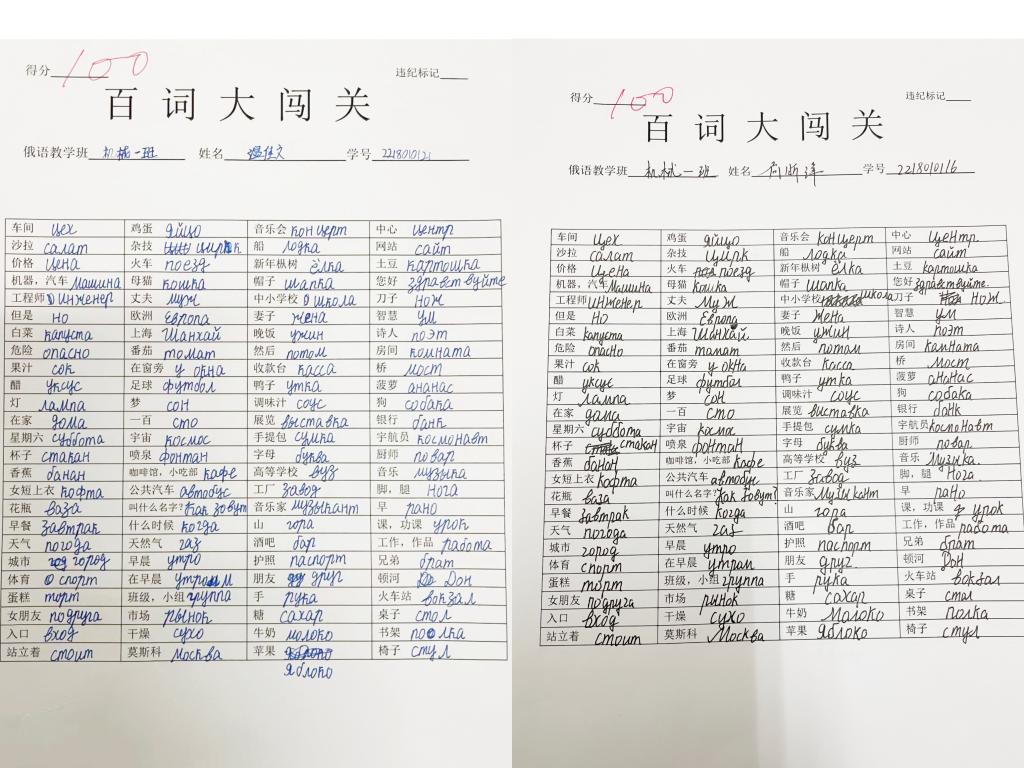 得分 100 违纪标记
百词大闯关
俄语教学班 机械一班 姓名 学号 2218010121
车间 цех 鸡蛋 яйцо 音乐会 концерт 中心 центр
沙拉 салат 杂技 цирк 船 лодка 网站 сайт
价格 цена 火车 поезд 新年枞树 ёлка 土豆 картошка
机器,汽车 машина 母猫 кошка 帽子 шапка 您好 здравствуйте
工程师 инженер 丈夫 муж 中小学校 школа 刀子 нож
但是 но 欧洲 Европа 妻子 жена 智慧 ум
白菜 капуста 上海 Шанхай 晚饭 ужин 诗人 поэт
危险 опасно 番茄 томат 然后 потом 房间 комната
果汁 сок 在窗旁 у окна 收款台 касса 桥 мост
醋 уксус 足球 футбол 鸭子 утка 菠萝 ананас
灯 лампа 梦 сон 调味汁 соус 狗 собака
在家 дома 一百 сто 展览 выставка 银行 банк
星期六 суббота 宇宙 космос 手提包 сумка 宇航员 космонавт
杯子 стакан 喷泉 фонтан 字母 буква 厨师 повар
香蕉 банан 咖啡馆,小吃部 кафе 高等学校 вуз 音乐 музыка
女短上衣 кофта 公共汽车 автобус 工厂 завод 脚,腿 нога
花瓶 ваза 叫什么名字? как зовут 音乐家 музыкант 早 рано
早餐 завтрак 什么时候 когда 山 гора 课,功课 урок
天气 погода 天然气 газ 酒吧 бар 工作,作品 работа
城市 город 早晨 утро 护照 паспорт 兄弟 брат
体育 спорт 在早晨 утром 朋友 друг 顿河 Дон
蛋糕 торт 班级,小组 группа 手 рука 火车站 вокзал
女朋友 подруга 市场 рынок 糖 сахар 桌子 стол
入口 вход 干燥 сухо 牛奶 молоко 书架 полка
站立着 стоит 莫斯科 Москва 苹果 椅子 стул
яблоко
得分 100 违纪标记
百词大闯关
俄语教学班 机械一班 姓名 学号 2218010116
车间 цех 鸡蛋 яйцо 音乐会 концерт 中心 центр.
沙拉 салат 杂技 цирк 船 лодка 网站 сайт
价格 цена 火车 поезд 新年枞树 ёлка 土豆 картошка
机器,汽车 машина 母猫 кошка 帽子 шапка 您好 здравствуйте.
工程师 инженер 丈夫 муж 中小学校 школа 刀子 нож
但是 но 欧洲 Европа 妻子 жена 智慧 ум
白菜 капуста 上海 Шанхай 晚饭 ужин 诗人 поэт
危险 опасно 番茄 томат 然后 потом 房间 камната
果汁 сок 在窗旁 у окна 收款台 касса 桥 мост
醋 уксус 足球 футбол 鸭子 утка 菠萝 ананас
灯 лампа 梦 сон 调味汁 соус 狗 собака
在家 дама 一百 сто 展览 виставка 银行 банк
星期六 суббота 宇宙 космос 手提包 сумка 宇航员 космонавт
杯子 стакан 喷泉 фонтан 字母 буква 厨师 повар
香蕉 банан 咖啡馆,小吃部 кафе 高等学校 вуз 音乐 музыка.
女短上衣 кофта 公共汽车 автобус 工厂 завод 脚,腿 нога
花瓶 ваза 叫什么名字? как зовут? 音乐家 музыкант 早 рано
早餐 завтрак 什么时候 когда 山 гора 课,功课 урок
天气 погода 天然气 газ 酒吧 бар 工作,作品 работа
城市 город 早晨 утро 护照 паспорт 兄弟 брат
体育 спорт 在早晨 утрам 朋友 друг. 顿河 Дон
蛋糕 торт 班级,小组 группа 手 рука 火车站 вокзал
女朋友 подруга 市场 ринок 糖 сахар 桌子 стол
入口 вход 干燥 сухо 牛奶 молоко 书架 полка
站立着 стоит 莫斯科 Москва 苹果 яблоко 椅子 стул